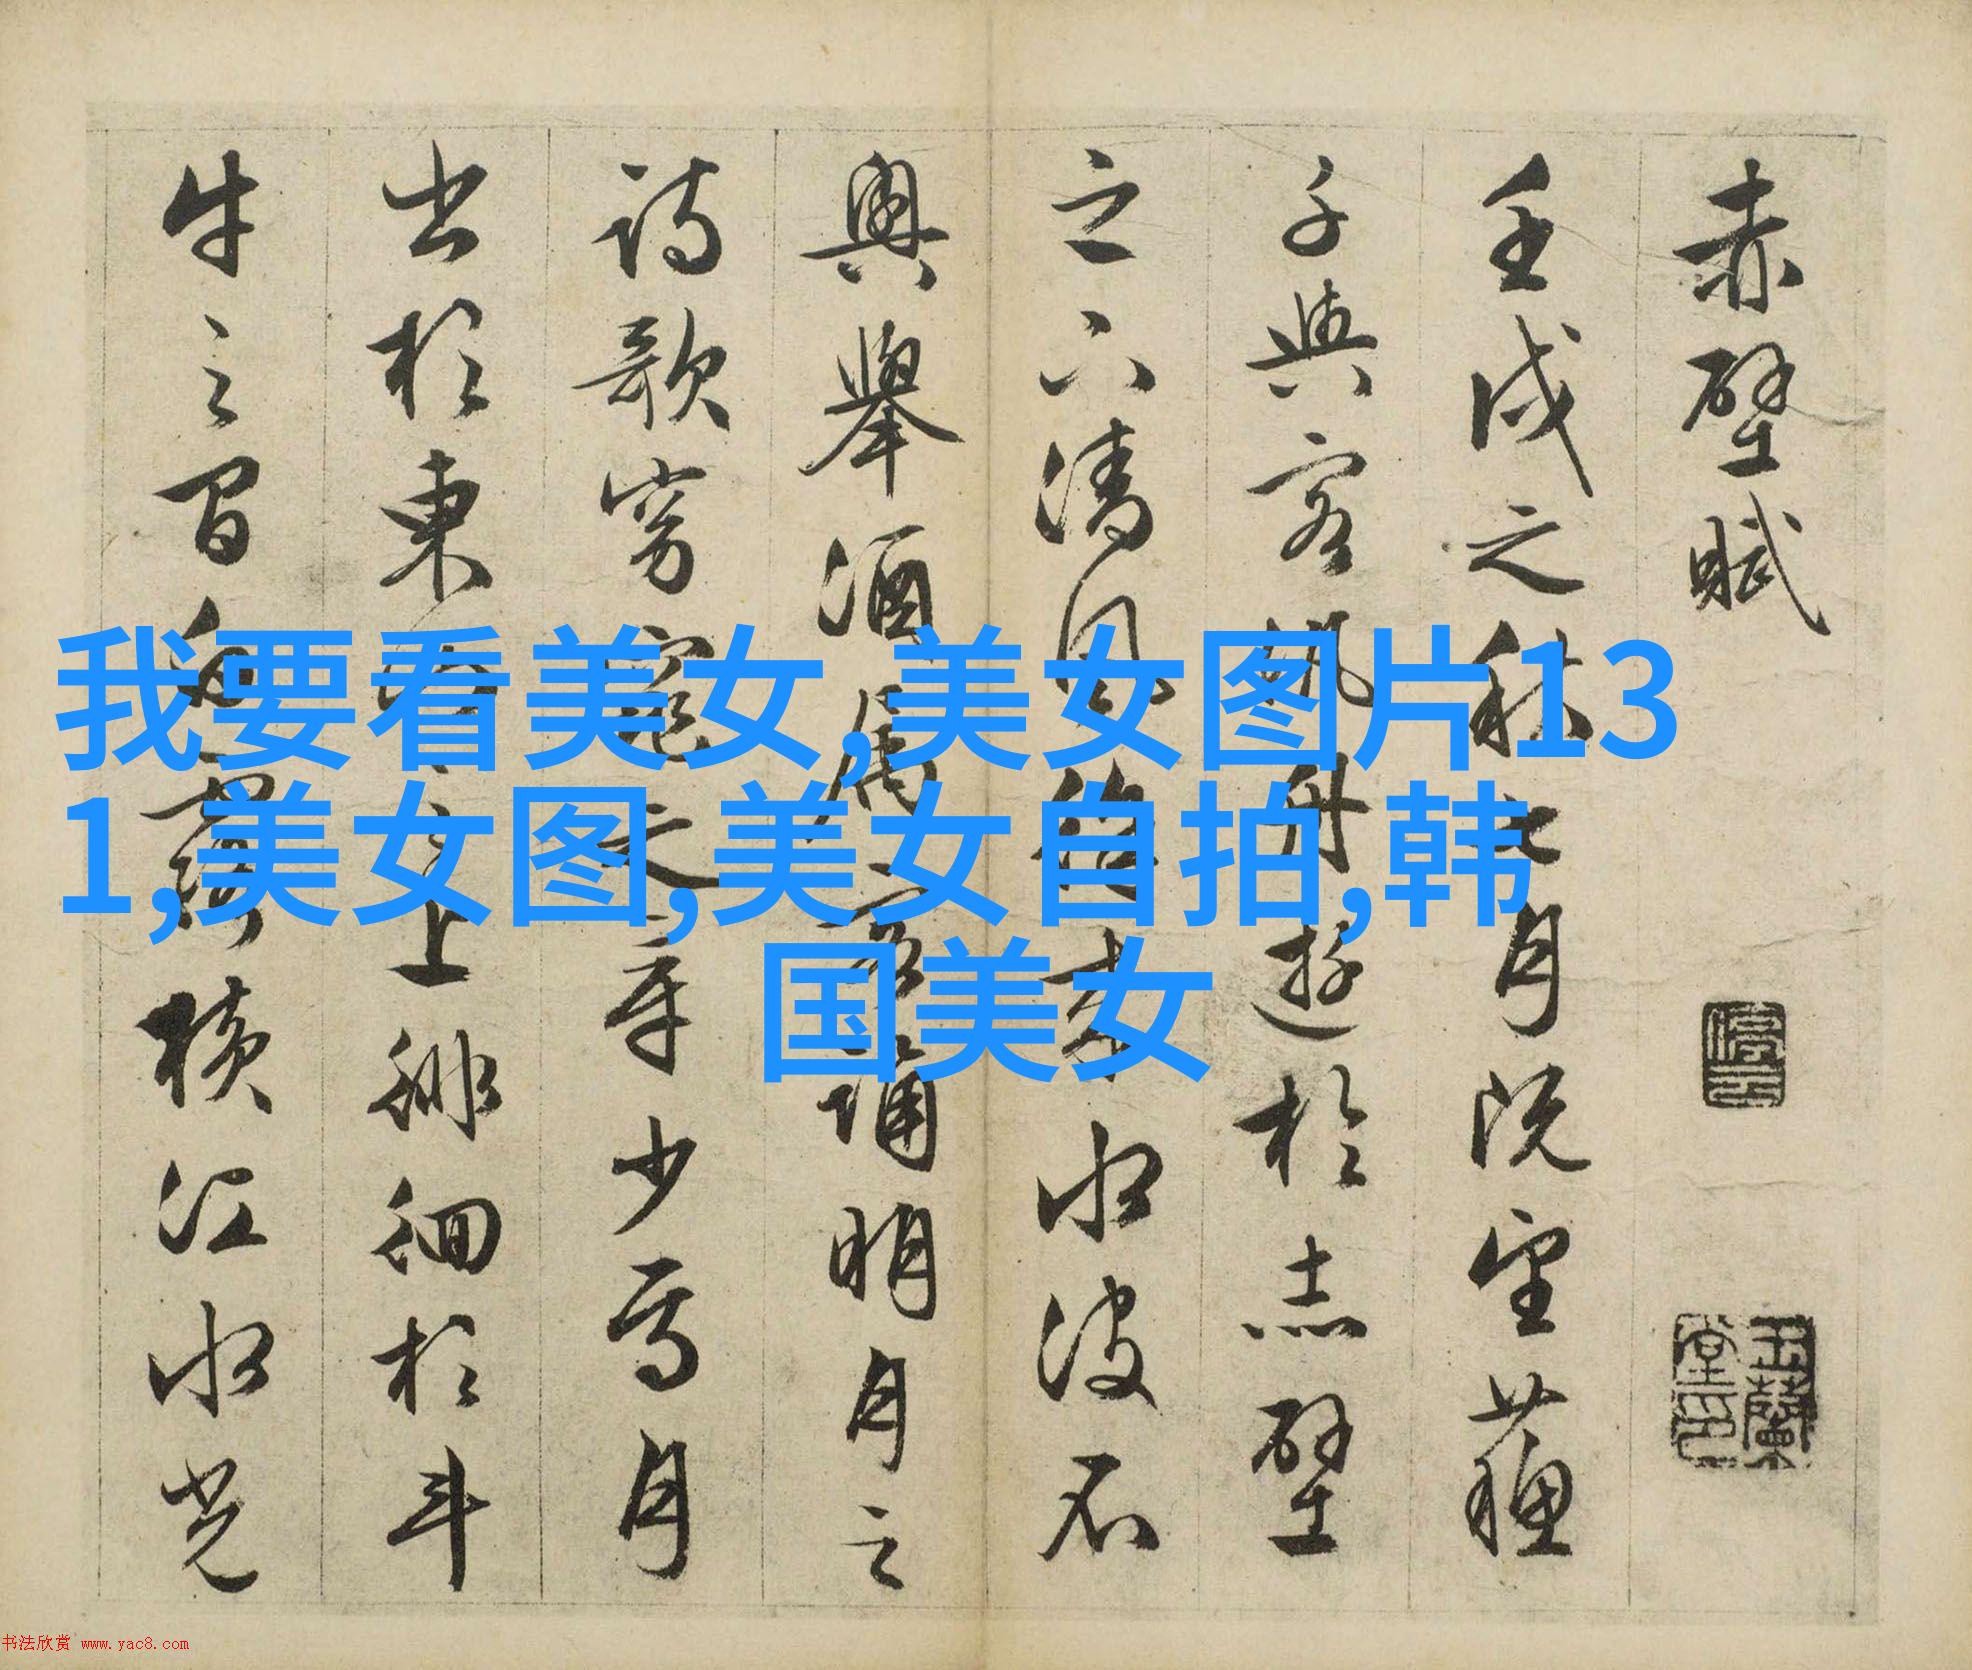 赤壁賦
壬戌之秋七月既望蘇
子與客汎舟遊於赤壁
之下清風徐來水波不
興舉酒屬客誦明月之
詩歌窈窕之章少焉月
出於東山之上徘徊於斗
牛之間白露橫江水光
停雲
玉蘭堂印
我要看美女,美女图片13
1,美女图,美女自拍,韩
国美女
书法欣赏 www.yac8.com